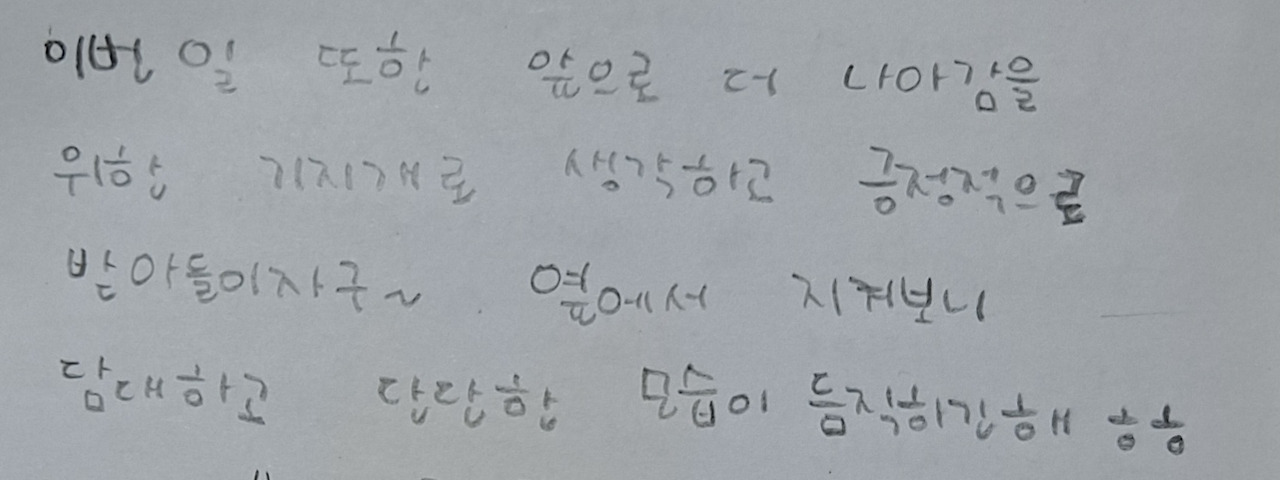 이번 일 또한 앞으로 더 나아감을
위한 기지개로 생각하고 긍정적으로
받아들이자구~ 옆에서 지켜보니
담대하고 단단한 모습이 듬직하긴해 흥흥